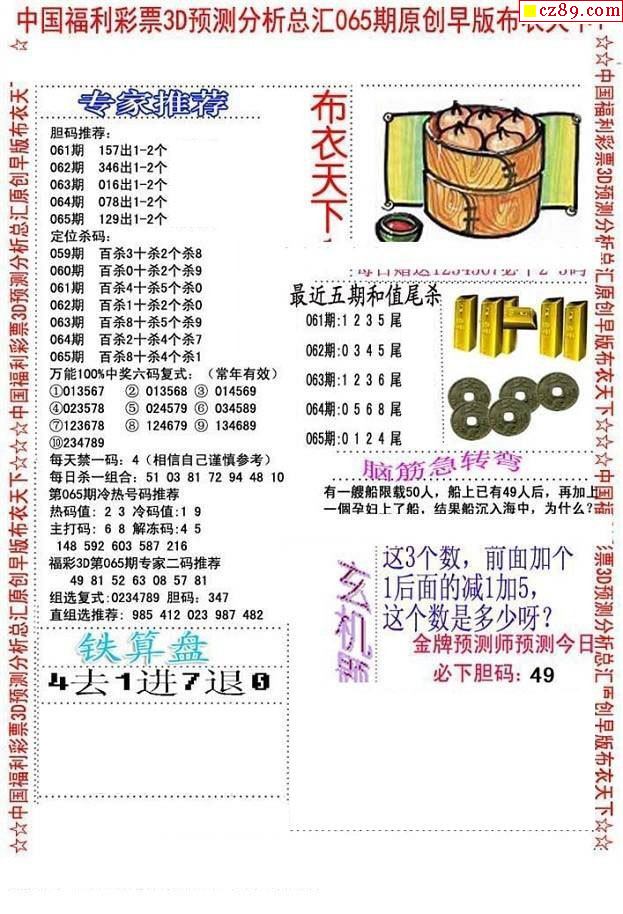 中国福利彩票3D预测分析总汇065期原创早版布衣天下
cz89.com
专家推荐
胆码推荐：
061期 157出1-2个
062期 346出1-2个
063期 016出1-2个
064期 078出1-2个
065期 129出1-2个
定位杀码：
059期 百杀3十杀2个杀8
060期 百杀0十杀2个杀9
061期 百杀4十杀5个杀0
062期 百杀1十杀2个杀0
063期 百杀8十杀5个杀9
064期 百杀2十杀4个杀7
065期 百杀8十杀4个杀1
万能100%中奖六码复式：（常年有效）
①013567 ② 013568 ③ 014569
④023578 ⑤ 024579 ⑥ 034589
⑦123678 ⑧ 124679 ⑨ 134689
⑩234789
每天禁一码：4（相信自己谨慎参考）
每日杀一组合：51 03 81 72 94 48 10
第065期冷热号码推荐
热码值：2 3 冷码值：1 9
主打码：6 8 解冻码：4 5
148 592 603 587 216
福彩3D第065期专家二码推荐
49 81 52 63 08 57 81
组选复式：0234789 胆码：347
直组选推荐：985 412 023 987 482
铁算盘
4去1进7退0
布衣天下
每日赠送1234567必下2-3码
最近五期和值尾杀
061期：1 2 3 5 尾
062期：0 3 4 5 尾
063期：1 2 3 6 尾
064期：0 5 6 8 尾
065期：0 1 2 4 尾
脑筋急转弯
有一艘船限载50人，船上已有49人后，再加上
一個孕妇上了船，结果船沉入海中，为什么？
玄机
这3个数，前面加个
1后面的减1加5，
这个数是多少呀？
金牌预测师预测今日
必下胆码：49
☆☆中国福利彩票3D预测分析总汇原创早版布衣天下☆☆☆中国福利彩票3D预测分析总汇原创早版布衣天
☆☆中国福利彩票3D预测分析总汇原创早版布衣天下☆☆☆中国福
彩票3D预测分析总汇原创早版布衣天下☆☆